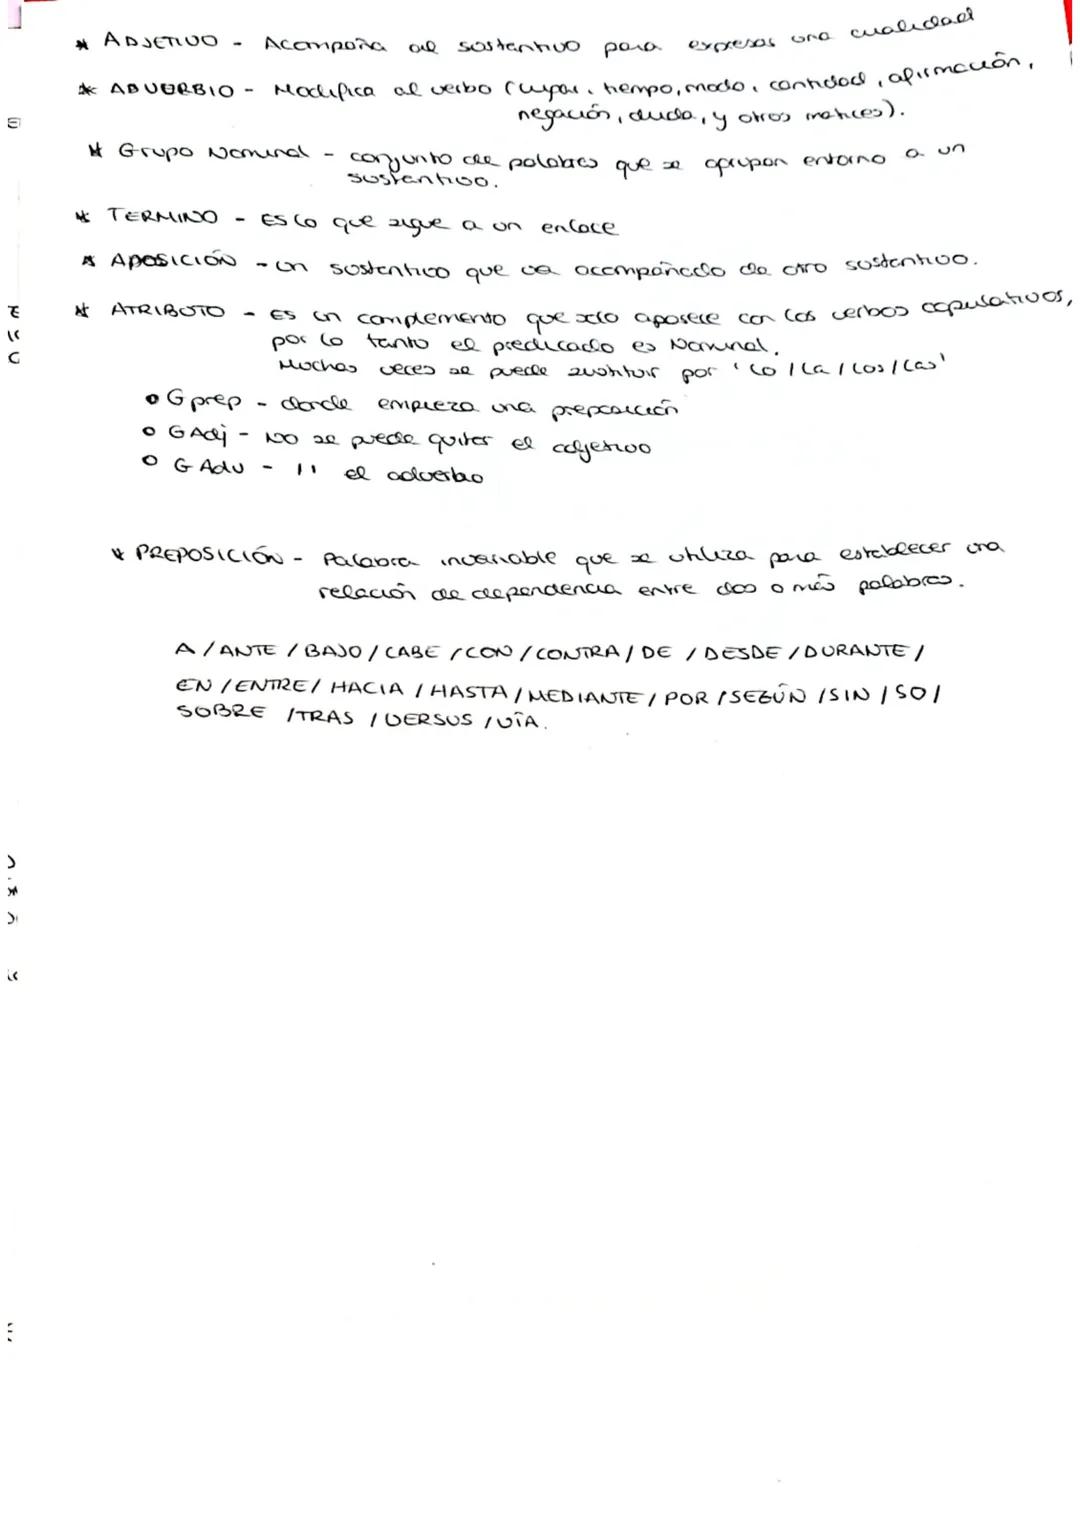 * ADJETIVO - Acompaña al sustantivo para expresar una cualidad
* ADVERBIO - Modifica al verbo (lugar, tiempo, modo, cantidad, afirmación,
negación, duda, y otros matices).
* Grupo Nominal - conjunto de palabras que se agrupan entorno a un
sustantivo.
* TERMINO - Es lo que sigue a un enlace
* APOSICIÓN - un sustantivo que va acompañado de otro sustantivo.
* ATRIBUTO - Es un complemento que solo aparece con los verbos copulativos,
por lo tanto el predicado es Nominal.
Muchas veces se puede sustituir por 'lo / la / los / las'
• G prep - donde empieza una preposición
• G Adj - No se puede quitar el adjetivo
• G Adv - 11 el adverbio
* PREPOSICIÓN - Palabra invariable que se utiliza para establecer una
relación de dependencia entre dos o más palabras.
A / ANTE / BAJO / CABE / CON / CONTRA / DE / DESDE / DURANTE /
EN / ENTRE / HACIA / HASTA / MEDIANTE / POR / SEGÚN / SIN / SO /
SOBRE / TRAS / VERSUS / VÍA.